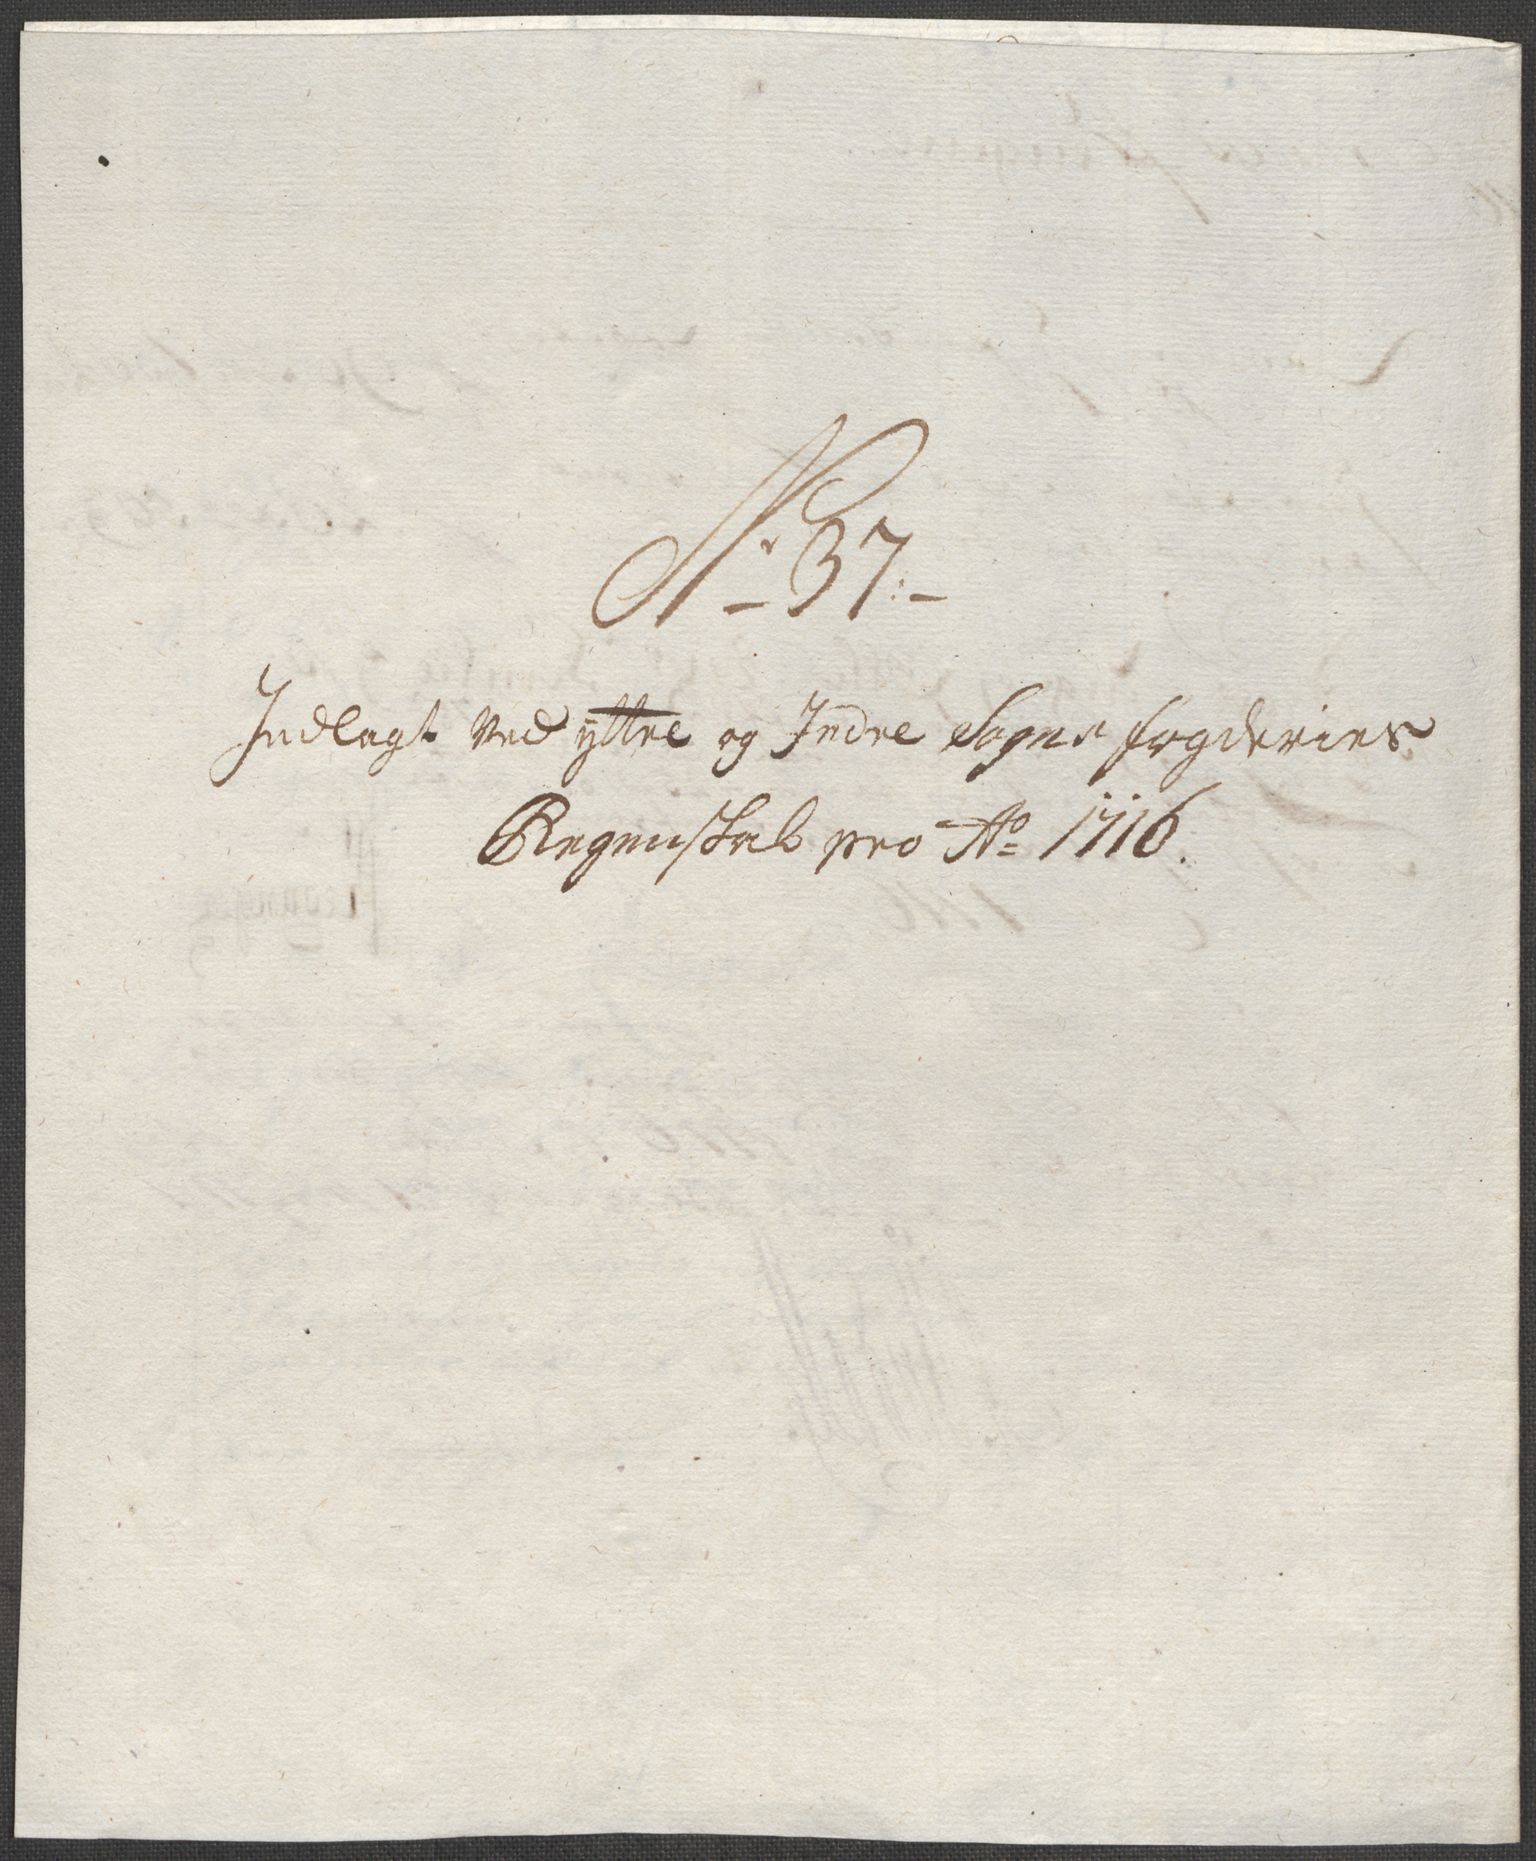 No 37.
Indlagt ved yttre og Indre Sogns fogderies
Regenskab pro Ao 1716.